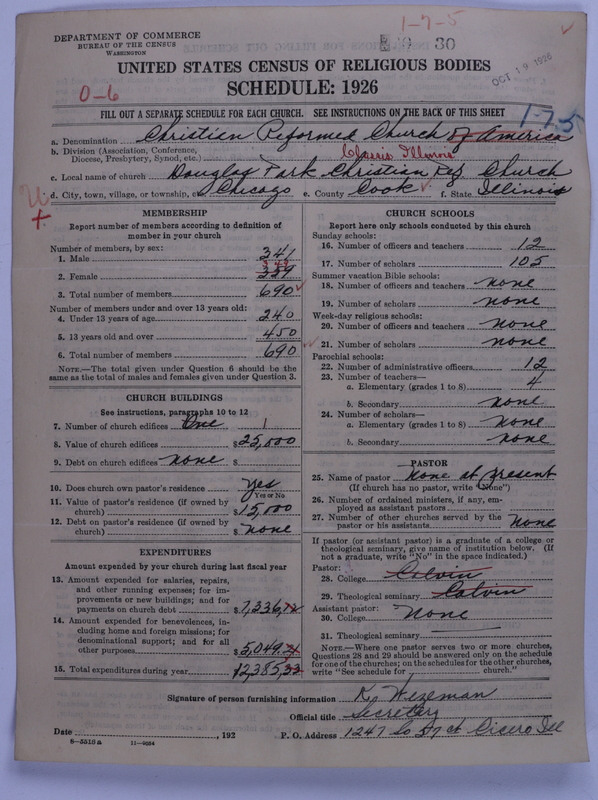 1-7-5
DEPARTMENT OF COMMERCE
BUREAU OF THE CENSUS
WASHINGTON
30
OCT 19 1926
UNITED STATES CENSUS OF RELIGIOUS BODIES
SCHEDULE: 1926
0-6
FILL OUT A SEPARATE SCHEDULE FOR EACH CHURCH. SEE INSTRUCTIONS ON THE BACK OF THIS SHEET
1-7-5
a. Denomination Christian Reformed Church of America
b. Division (Association, Conference, Diocese, Presbytery, Synod, etc.) Classis Illinois
c. Local name of church Douglas Park Christian Ref Church
d. City, town, village, or township, etc. Chicago e. County Cook f. State Illinois
MEMBERSHIP
Report number of members according to definition of
member in your church
Number of members, by sex:
1. Male 341
2. Female 349
3. Total number of members 690
Number of members under and over 13 years old:
4. Under 13 years of age 240
5. 13 years old and over 450
6. Total number of members 690
NOTE.—The total given under Question 6 should be
same as the total of males and females given under Question 3.
CHURCH BUILDINGS
See instructions, paragraphs 10 to 12
7. Number of church edifices One 1
8. Value of church edifices $25,000
9. Debt on church edifices none $
10. Does church own pastor's residence yes
Yes or No
11. Value of pastor's residence (if owned by
church) $15,000
12. Debt on pastor's residence (if owned by
church) $ none
EXPENDITURES
Amount expended by your church during last fiscal year
13. Amount expended for salaries, repairs,
and other running expenses; for im-
provements or new buildings; and for
payments on church debt $7,336.
14. Amount expended for benevolences, in-
cluding home and foreign missions; for
denominational support; and for all
other purposes $5,049.
15. Total expenditures during year $12,385.33
CHURCH SCHOOLS
Report here only schools conducted by this church
Sunday schools:
16. Number of officers and teachers 12
17. Number of scholars 105
Summer vacation Bible schools:
18. Number of officers and teachers none
19. Number of scholars none
Week-day religious schools:
20. Number of officers and teachers none
21. Number of scholars none
Parochial schools:
22. Number of administrative officers 12
23. Number of teachers—
a. Elementary (grades 1 to 8) 4
b. Secondary none
24. Number of scholars—
a. Elementary (grades 1 to 8) none
b. Secondary none
PASTOR
25. Name of pastor None at present
(If church has no pastor, write "None")
26. Number of ordained ministers, if any, em-
ployed as assistant pastors
27. Number of other churches served by the
pastor or his assistants none
If pastor (or assistant pastor) is a graduate of a college or
theological seminary, give name of institution below. (If
not a graduate, write "No" in the space indicated.)
Pastor:
28. College Calvin
29. Theological seminary Calvin
Assistant pastor:
30. College None
31. Theological seminary
NOTE.—Where one pastor serves two or more churches,
Questions 28 and 29 should be answered only on the schedule
for one of the churches; on the schedules for the other churches,
write "See schedule for church."
Signature of person furnishing information K. Wezeman
Official title Secretary
Date , 192 P. O. Address 1247 So 57 ct Cicero Ill
8—5510 a 11—9034